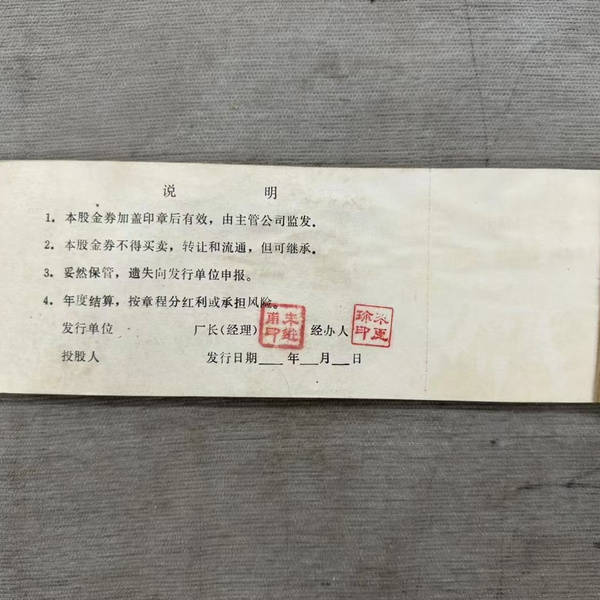 说 明
1. 本股金券加盖印章后有效，由主管公司监发.
2. 本股金券不得买卖，转让和流通，但可继承.
3. 妥然保管，遗失向发行单位申报.
4. 年度结算，按章程分红利或承担风险。
发行单位 厂长(经理) 经办人
投股人 发行日期___年__月__日